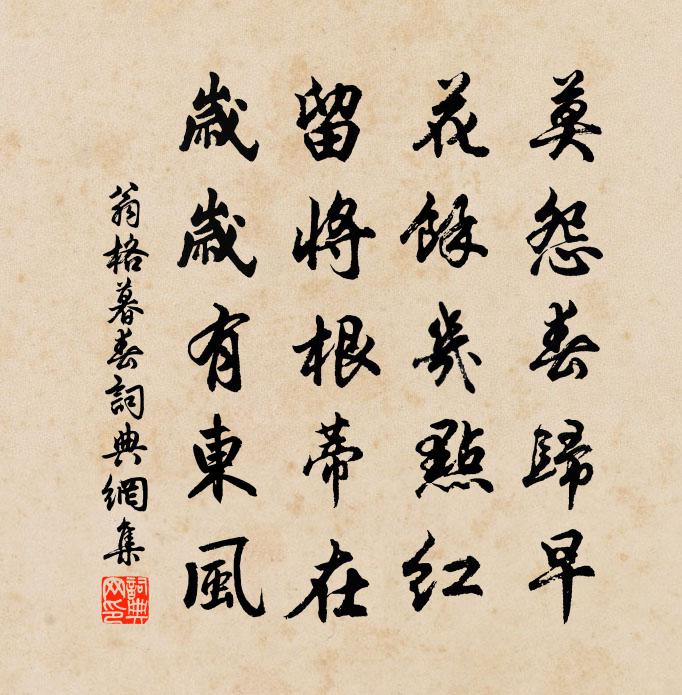 莫怨春歸早
花餘幾點紅
留將根蒂在
歲歲有東風
翁格暮春詞典網集
詞典
网印